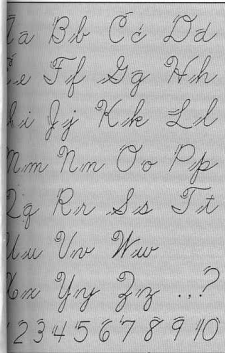 a Bb Cc Dd
e Ff Gg Hh
i Jj Kk Ll
Mm Nn Oo Pp
Qq Rr Ss Tt
Uu Vv Ww
Xx Yy Zz ...?
1 2 3 4 5 6 7 8 9 10